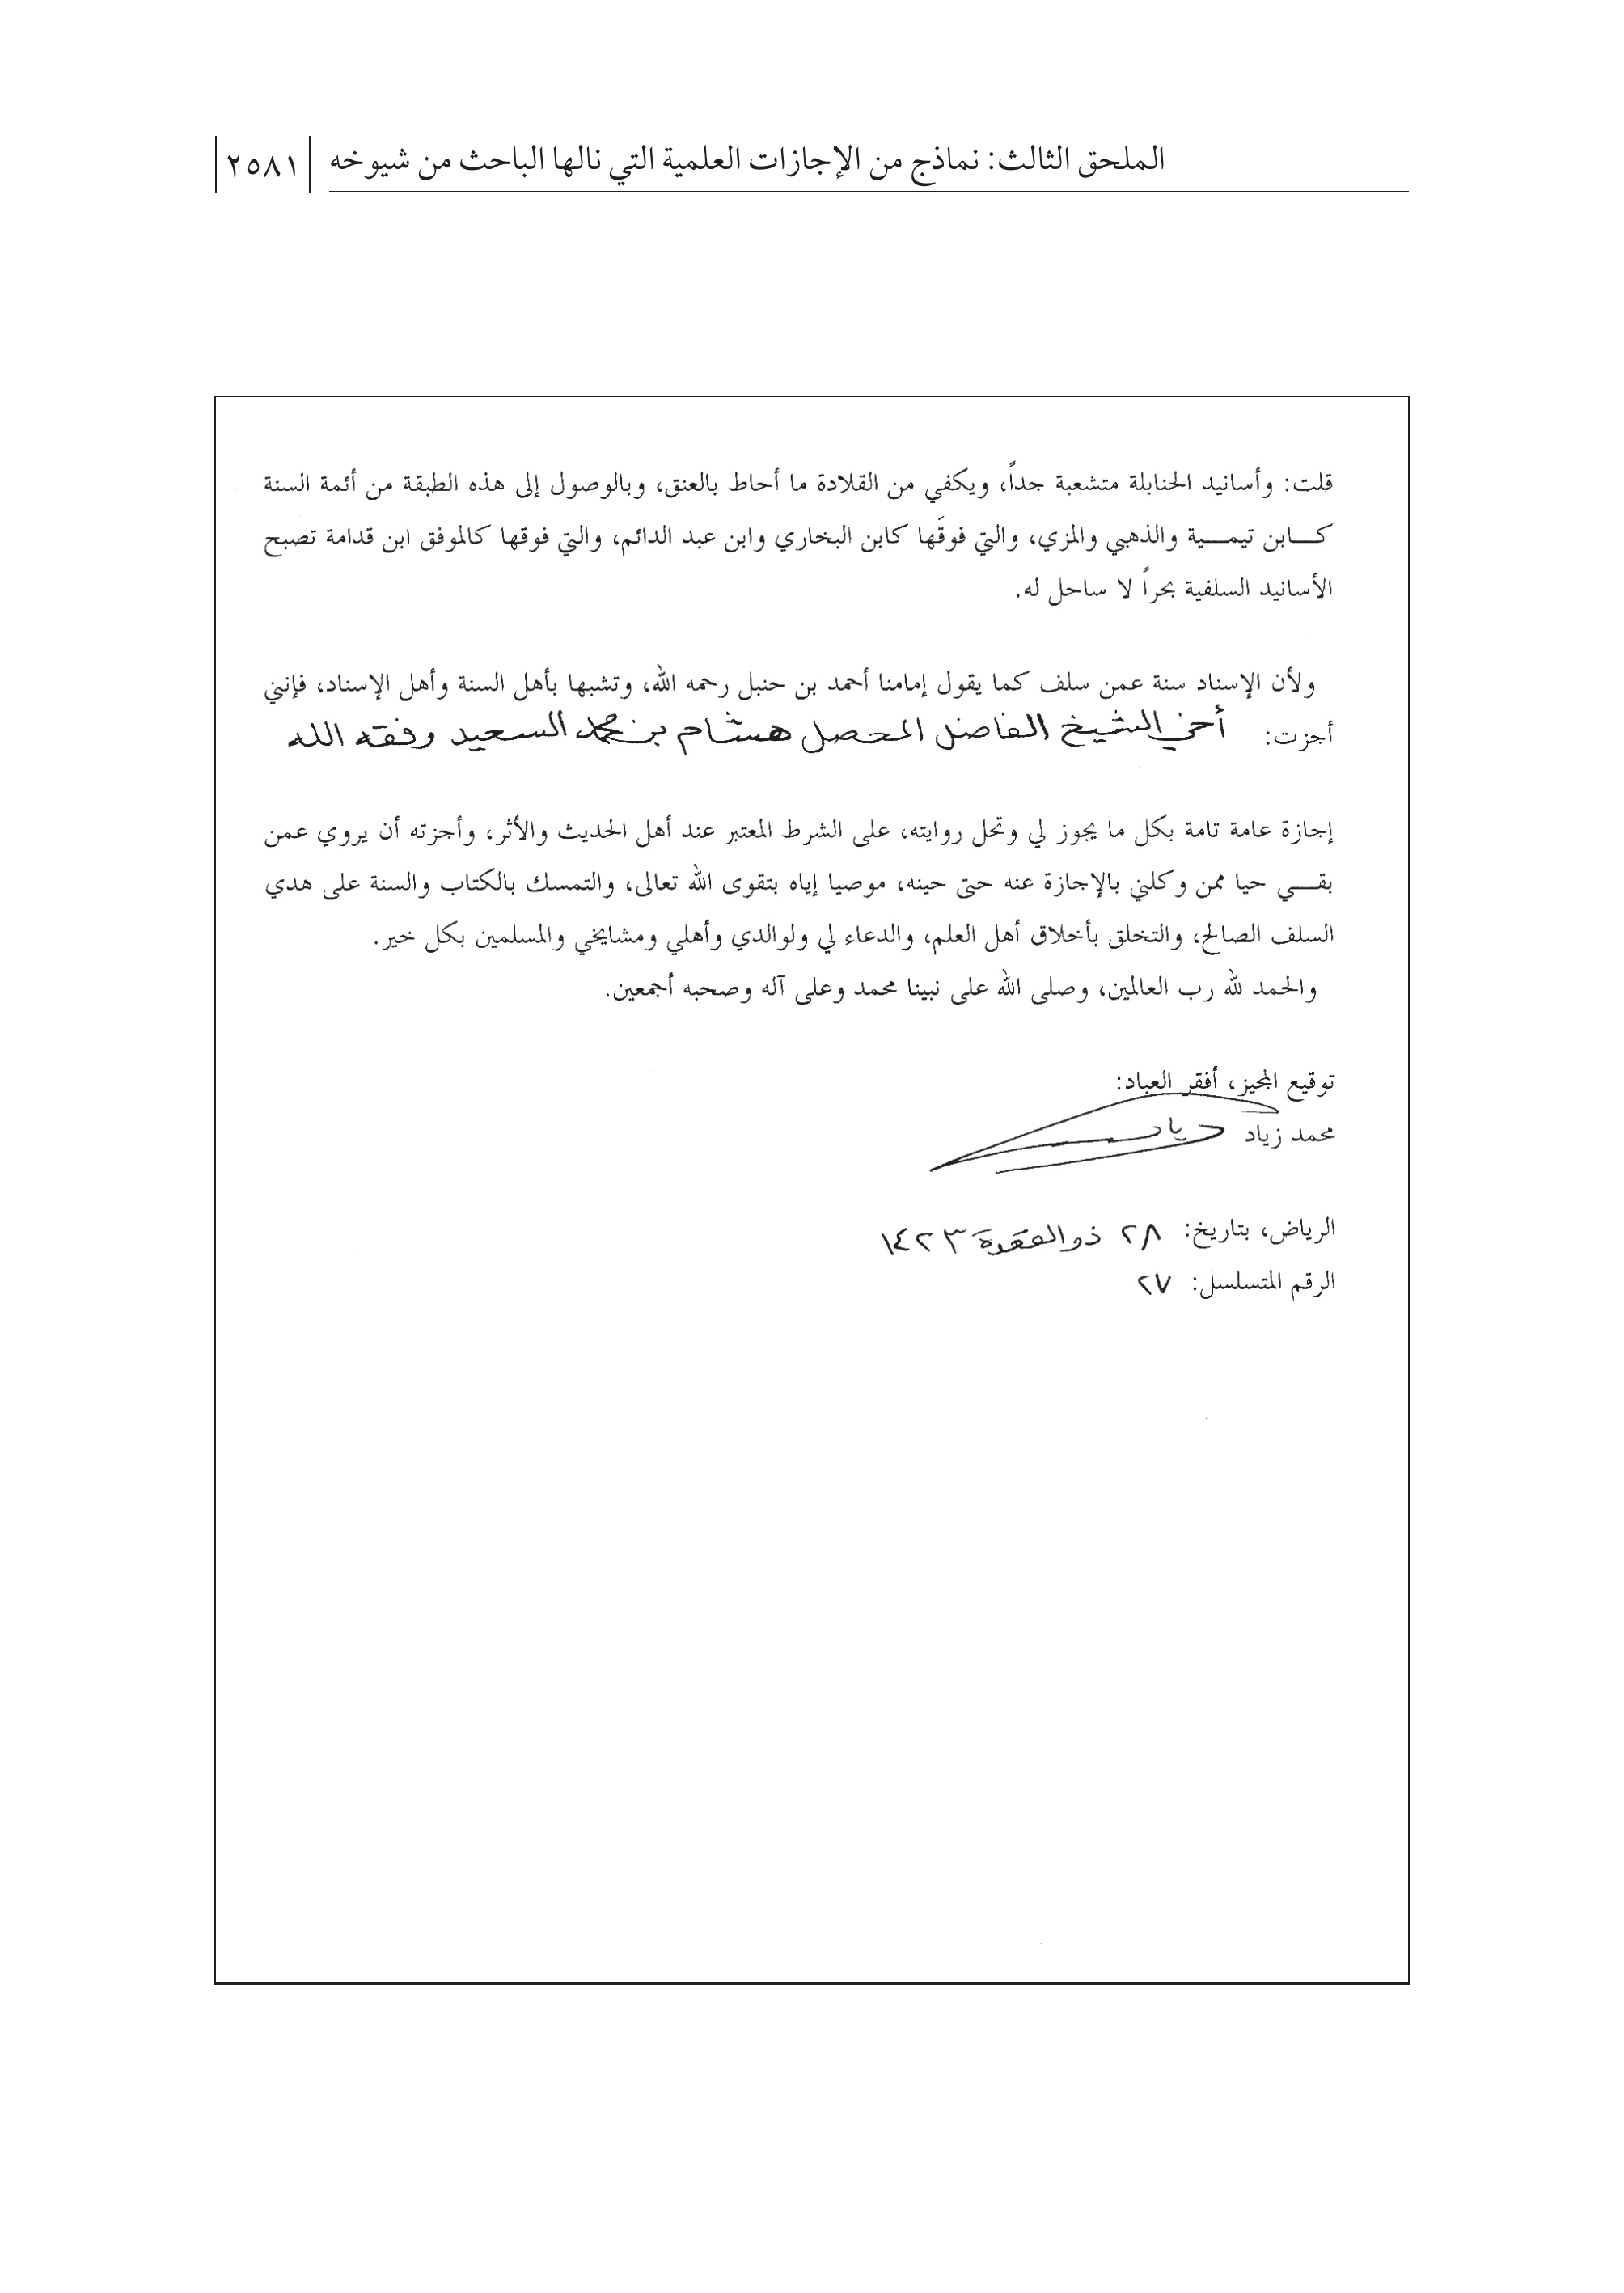 الملحق الثالث: نماذج من الإجازات العلمية التي نالها الباحث من شيوخه ٢٥٨١
قلت: وأسانيد الحنابلة متشعبة جداً، ويكفي من القلادة ما أحاط بالعنق، وبالوصول إلى هذه الطبقة من أئمة السنة
كابن تيمية والذهبي والمزي، والتي فوقَها كابن البخاري وابن عبد الدائم، والتي فوقها كالموفق ابن قدامة تصبح
الأسانيد السلفية بحراً لا ساحل له.
ولأن الإسناد سنة عمن سلف كما يقول إمامنا أحمد بن حنبل رحمه الله، وتشبها بأهل السنة وأهل الإسناد، فإنني
أجزت: أخي الشيخ الفاضل المحصل هشام بن محمد السعيد وفقه الله
إجازة عامة تامة بكل ما يجوز لي وتحل روايته، على الشرط المعتبر عند أهل الحديث والأثر، وأجزته أن يروي عمن
بقي حيا ممن وكلني بالإجازة عنه حتى حينه، موصيا إياه بتقوى الله تعالى، والتمسك بالكتاب والسنة على هدي
السلف الصالح، والتخلق بأخلاق أهل العلم، والدعاء لي ولوالدي وأهلي ومشايخي والمسلمين بكل خير.
والحمد لله رب العالمين، وصلى الله على نبينا محمد وعلى آله وصحبه أجمعين.
توقيع المجيز، أفقر العباد:
محمد زياد
الرياض، بتاريخ: ٢٨ ذو القعدة ١٤٢٣
الرقم المتسلسل: ٢٧